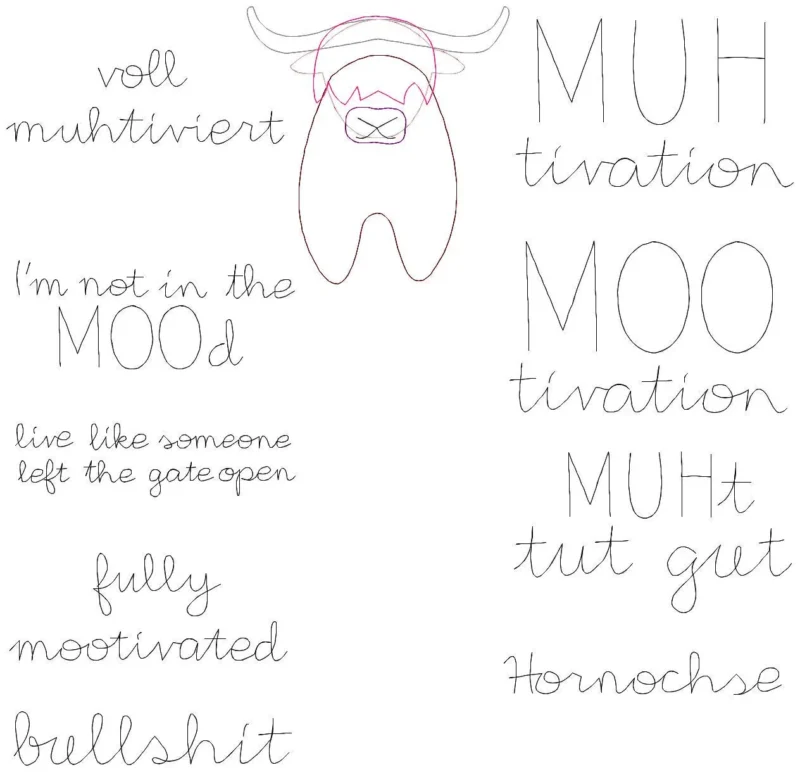 voll
muhtiviert
I'm not in the
MOOd
live like someone
left the gate open
fully
mootivated
bullshit
MUH
tivation
MOO
tivation
MUHt
tut gut
Hornochse